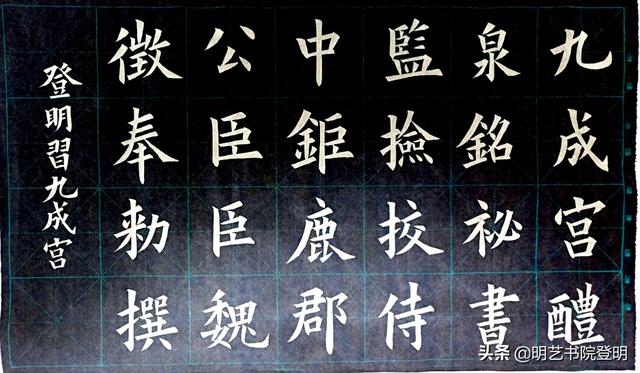 九成宫醴
泉銘祕書
監撿挍侍
中鉅鹿郡
公臣臣魏
徵奉勑撰
登明習九成宫
头条 @明艺书院登明